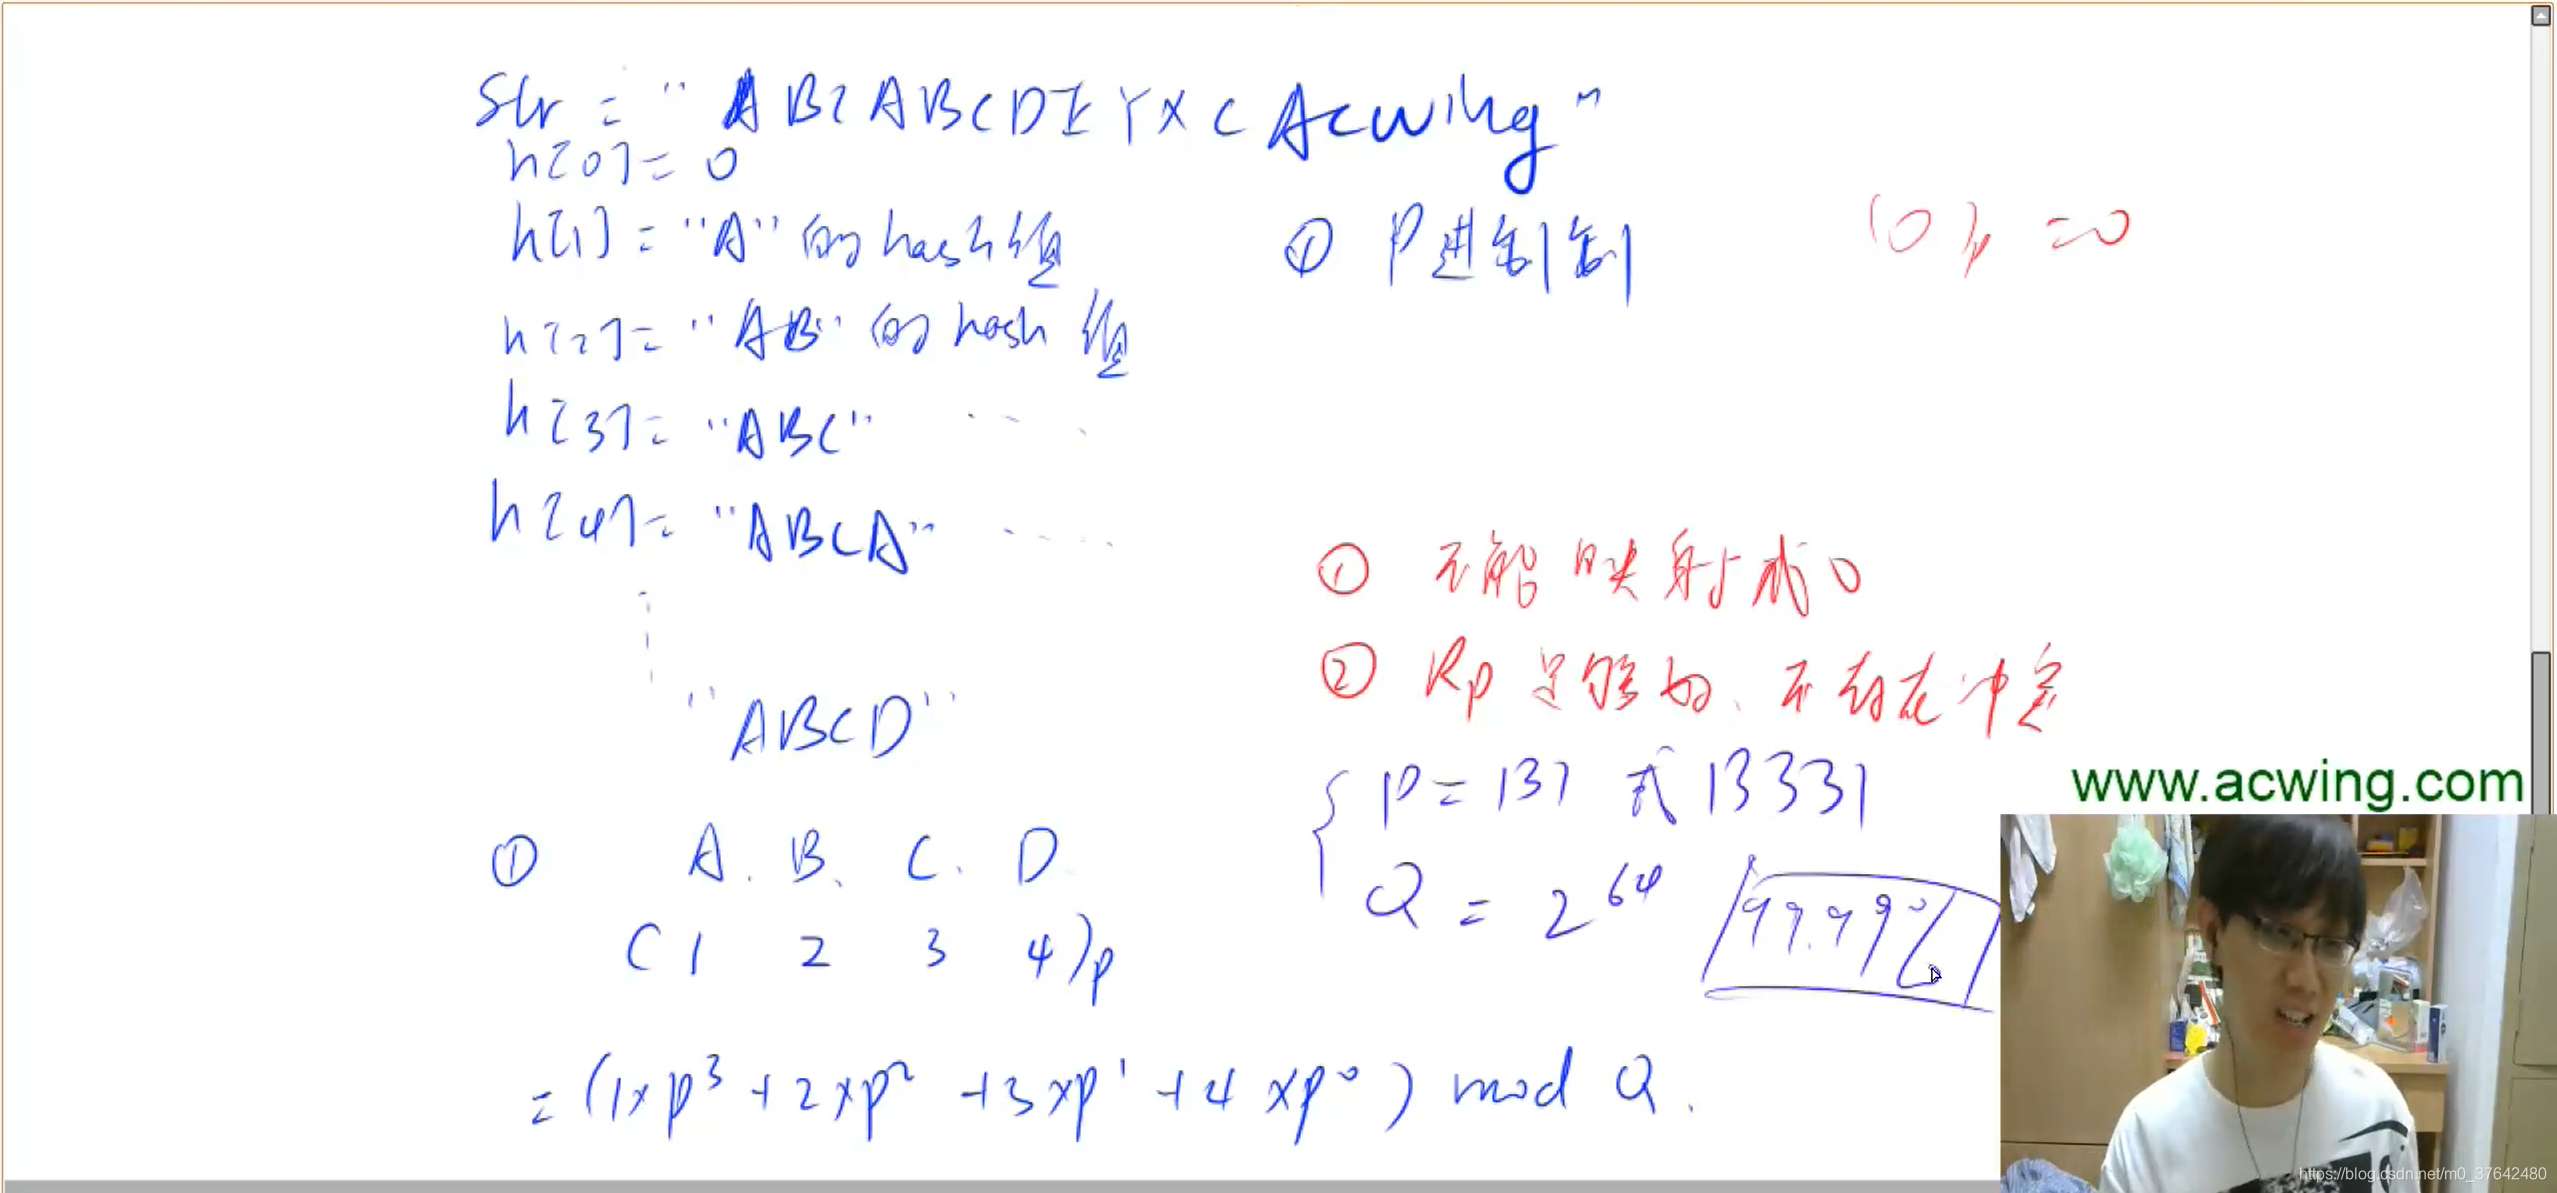 str = "ABCABCDEYXCAcwing"
h[0] = 0
h[1] = "A" 的 hash 值
① P进制
(0)p = 0
h[2] = "AB" 的 hash 值
h[3] = "ABC" ....
h[4] = "ABCA" ....
① 不能映射成 0
② Rp 足够好、不存在冲突
"ABCD"
P = 131 或 13331
Q = 2^64 99.99%
www.acwing.com
① A. B. C. D
(1 2 3 4)p
= (1×p^3 + 2×p^2 + 3×p^1 + 4×p^0) mod Q.
https://blog.csdn.net/m0_37642480